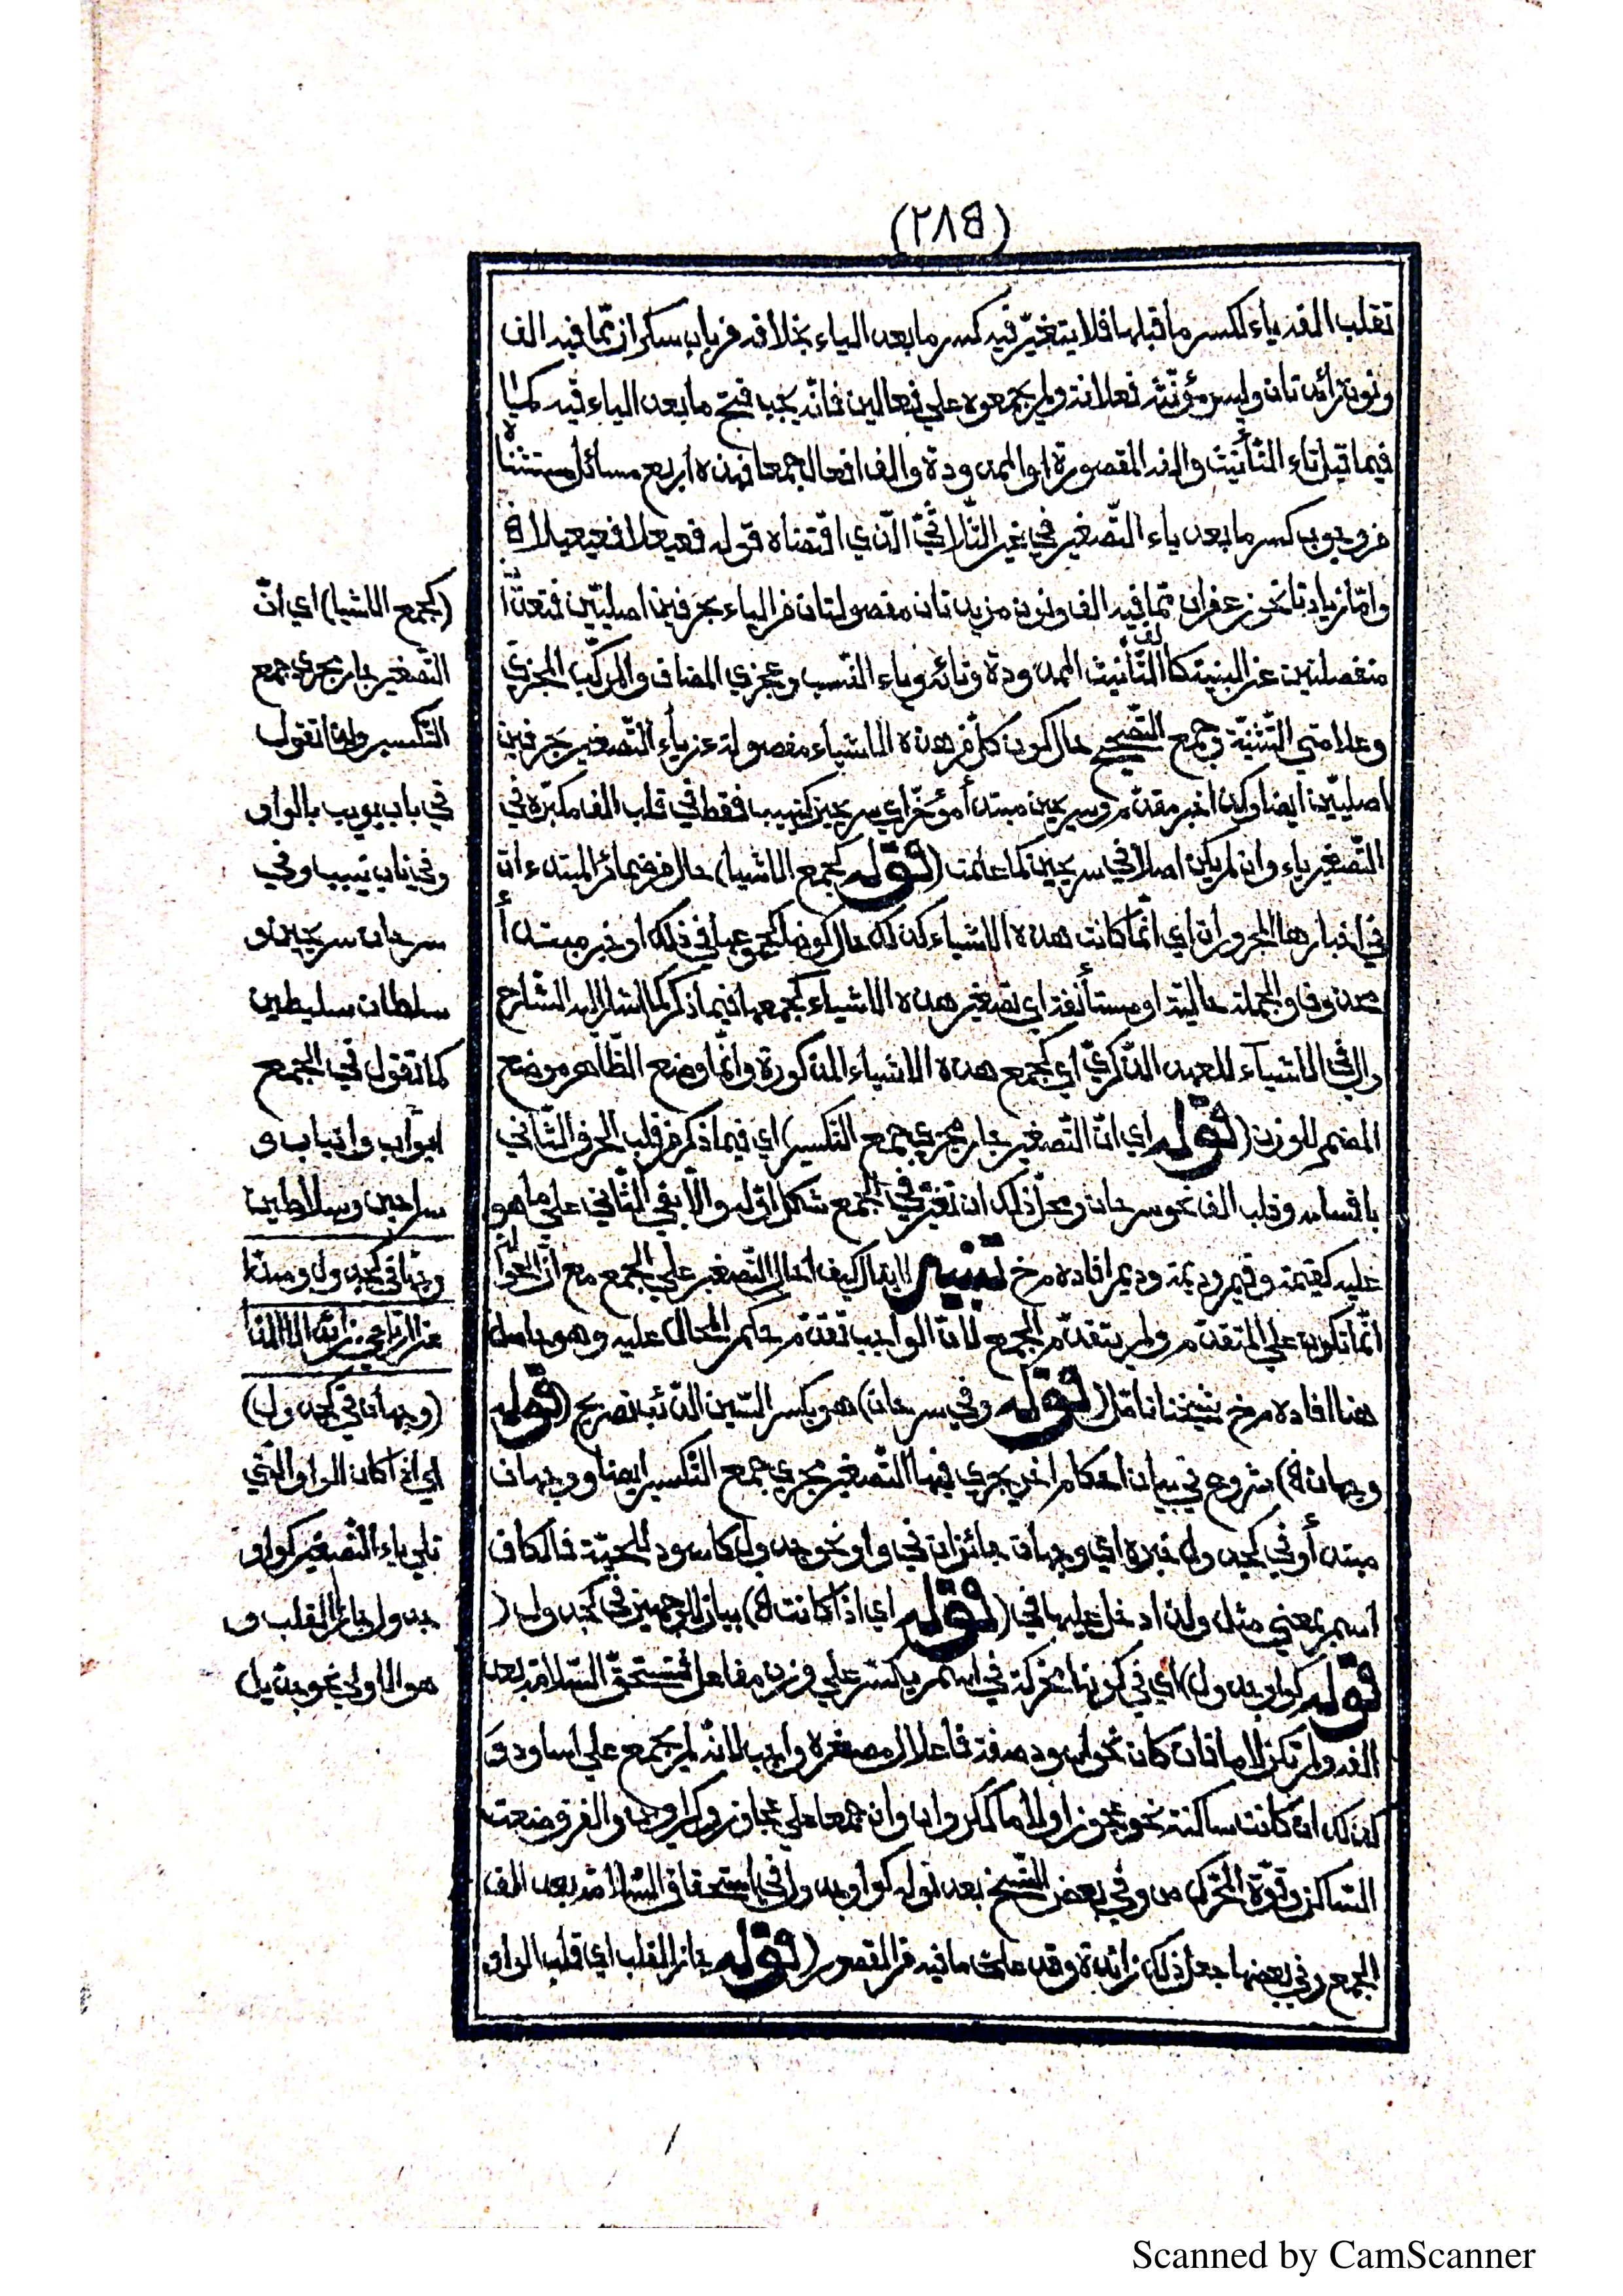 (٢٨٥)
تقلب الفه ياء لكسر ما قبلها فلا يتغيّر فيه كسر ما بعد الياء بخلافه فى باب سكران ممّا فيه الف
ونون زائدتان وليس مؤنّثه فعلانة ولم يجمعوه علي فعالين فانّه يجب فتح ما بعد الياء فيه كما
فيما قبل تاء التّأنيث والفه المقصورة او الممدودة والف افعال جمعا فهذه اربع مسائل مستثناة
من وجوب كسر ما بعد ياء التّصغير في غير الثّلاثيّ الّذي اقتضاه قوله فعيعلا فعيعيلا
وامّا زيادتا نحو زعفران ممّا فيه الف ونون مزيدتان مفصولتان من الياء بحرفين اصليّين فتعدّا
منفصلتين عن البنية كالف التّأنيث الممدودة وتائه وياء النّسب وعجزي المضاف والمركّب المزجيّ
وعلامتي التّثنية وجمع التّصحيح حال كون كلّ من هذه الاشياء مفصولة عن ياء التّصغير بحرفين
اصليّين ايضا وكذا خبر مقدّم وسريحين مبتدأ مؤخّر اي سريحين كنييب فقط في قلب الف مكبّره في
التّصغير ياء وان لم يكن اصلا في سريحين كما علمت (قوله كجمع الاشيا) حال من ضمائر المبتدءات
في اخبارها المجرورات اي انّما كانت هذه الاشياء كذلك حال كونها كجموعها في ذلك او خبر مبتدأ
محذوف والجملة حاليّة او مستأنفة اي تصغير هذه الاشياء كجمعها فيما ذكر كما اشار اليه الشارح
وال في الاشياء للعهد الذّكريّ اي كجمع هذه الاشياء المذكورة وانّما وضع الظّاهر موضع
المضمر للوزن (قوله اي انّ التّصغير جار مجري جمع التكسير) اي فيما ذكر من قلب الحرف الثّاني
باقسامه وقلب الف نحو سرحان ومحلّ ذلك ان تغيّر في الجمع شكل اوّله والّا بقي الثّاني علي ما هو
عليه كقيمة وقيم وديمة وديم افاده م خ تنبيه لا يقال كيف احال التّصغير علي الجمع مع انّ الحوالة
انّما تكون علي المتقدّم ولم يتقدّم الجمع لانّا نقول الواجب تقدّم حكم المحال عليه وهو حاصل
هنا افاده م خ شيخنا تامّل (قوله وفي سرحان) هو بكسر السّين الذّئب تصريح (قوله
وجهان ه) شروع في بيان احكام اخري يجري فيها التصغير مجري جمع التكسير ايضا ووجهان
مبتدأ وفي كجدول خبره اي وجهان جائزان في واو نحو جدول كاسود للحيّة فالكاف
اسم بمعني مثل ولذا دخل عليها في (قوله اي اذا كانت ه) بيان للوجهين في كجدول (
قوله كواو جدول) اي في كونها متحركة في اسم يكسّر علي وزن مفاعل فتستحقّ السّلامة بعد
الفه ولم تكن لاما فان كان نحو اسود صفة فاعلال مصغّره واجب لانّه لم يجمع علي اساود و
كذلك ان كانت ساكنة نحو عجوز او لاما ككروان وان جمعا علي عجاوز وكراوين والفرق ضعف
السّاكن وقوّة المتحرّك ص وفي بعض النّسخ بعد قوله كواو جدول في استحقاق السّلامة بعد الف
الجمع وفي بعضها جعل ذلك زائدة وقد علمت ما فيه من القصور (قوله جائز القلب اي قلب الواو
(كجمع الاشيا) اي انّ
التّصغير جار مجري جمع
التّكسير ولذا تقول
في باب بويب بالواو
وفي ناب نييب وفي
سرحان سريحين و
سلطان سليطين
كما تقول في الجمع
ابواب وانياب و
سراحين وسلاطين
وجهان في كجدول ومدّنا
عن الرّباعي زائد الا الفا
(وجهان في كجدول)
اي اذا كان الواو الّتي
تلي ياء التّصغير كواو
جدول جائز القلب و
هو الاولي نحو جديل
Scanned by CamScanner